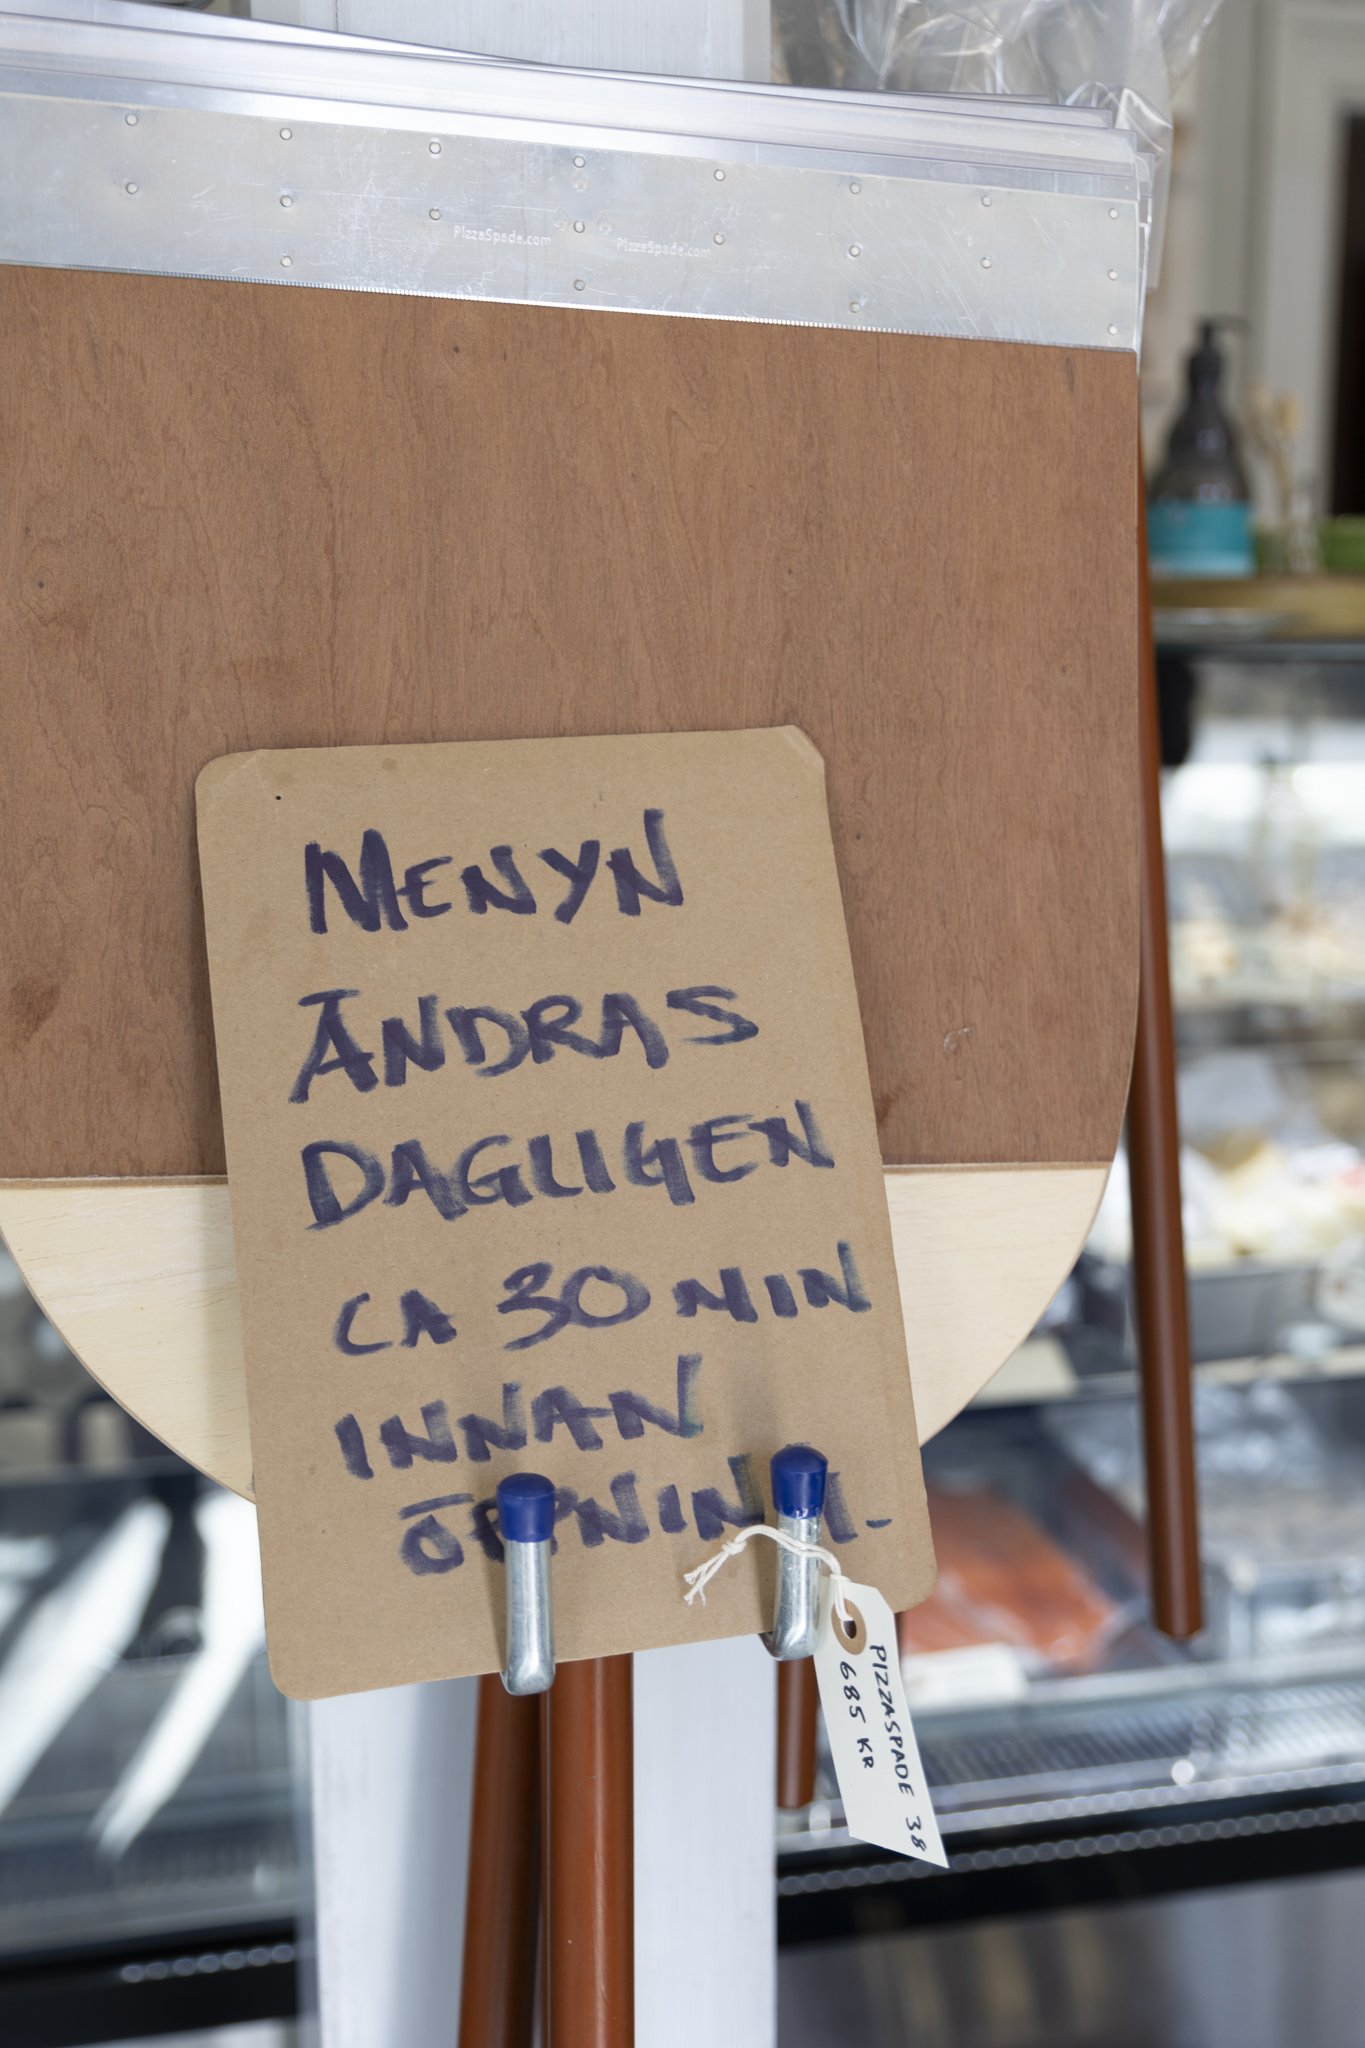 PizzaSpade.com PizzaSpade.com
MENYN
ÄNDRAS
DAGLIGEN
CA 30 MIN
INNAN
ÖPPNING.
PIZZASPADE 38
685 KR